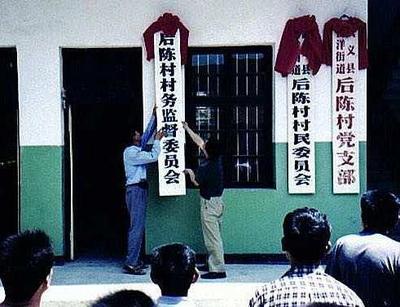 后陈村村务监督委员会
县
道
后陈村村民委员会
义县
洋街道
后陈村党支部